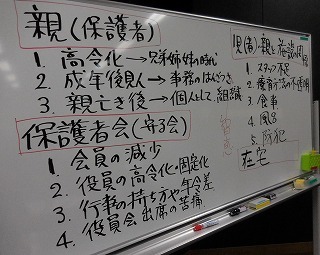 親(保護者)
1. 高令化→兄弟姉妹の時代
2. 成年後見人→事務のはんざつさ
3. 親亡き後→個人として、組識
保護者会(守る会)
1. 会員の減少
2. 役員の高令化・固定化
3. 行事の持ち方や年令差
4. 役員会出席の苦痛
児(者)親と施設の関係
1. スタッフ不足
2. 療育方法の不透明
3. 食事
4. 風呂
5. 防犯
在宅